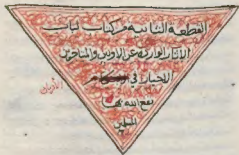 القطعة الثانية من كتاب لباب
الاثار الواردة عن الاولين والمتاخرين
الاخيار في
الأديان
نفع الله بها
المسلمين